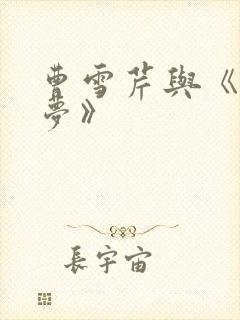 曹雪芹與《
夢》
長宇宙